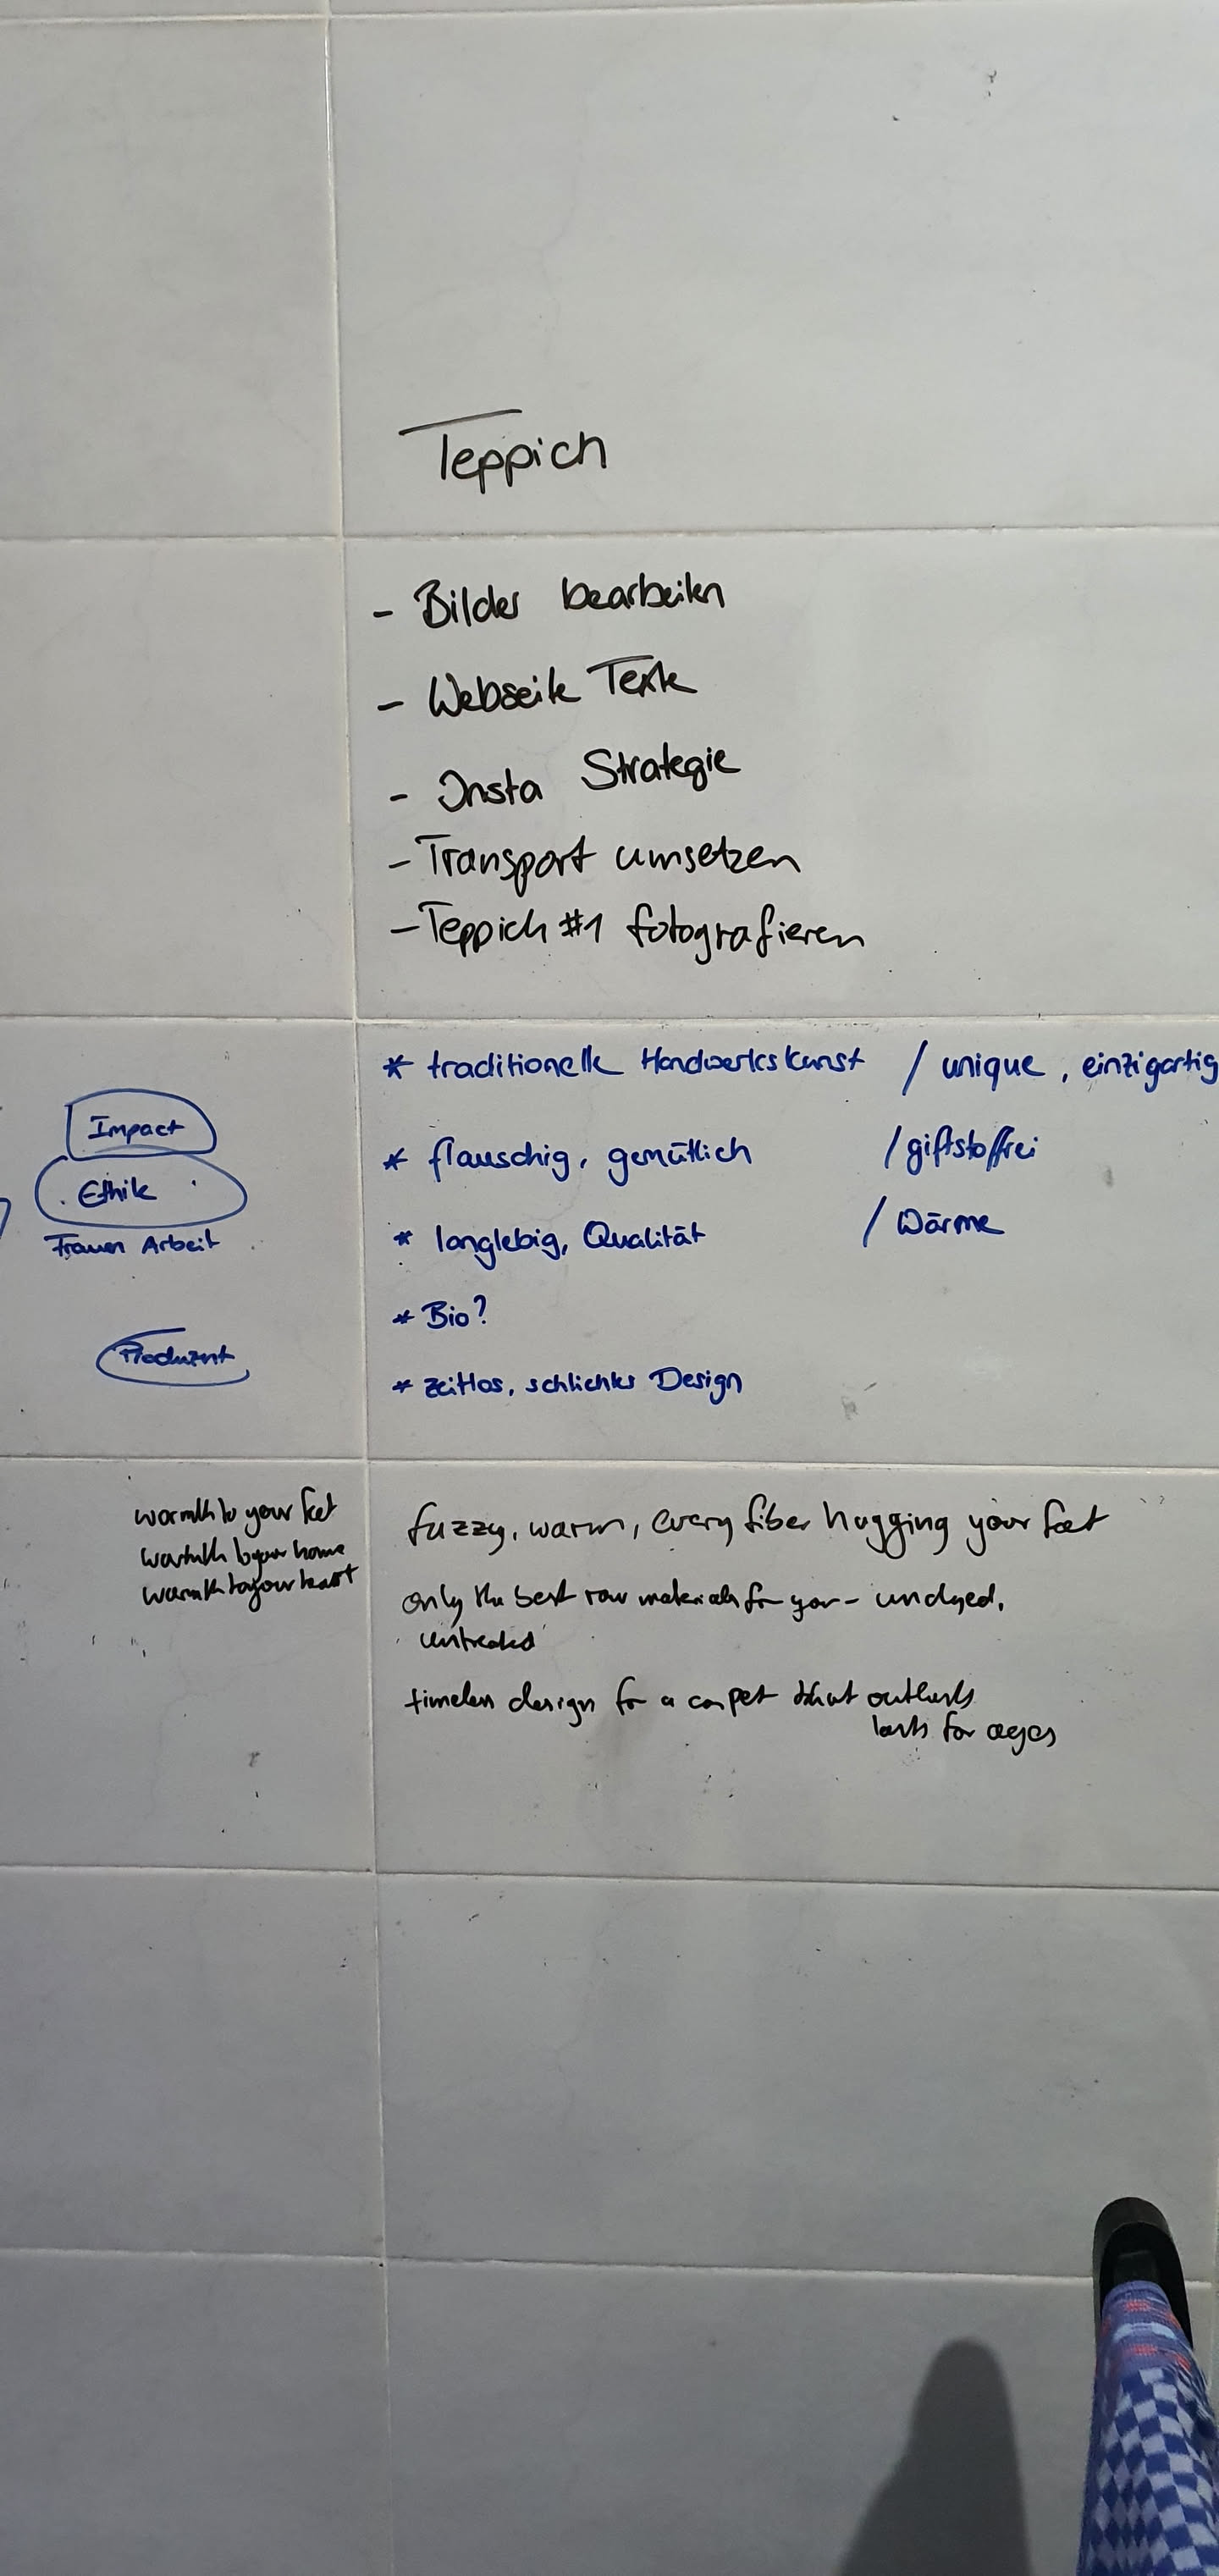 Teppich
- Bilder bearbeiten
- Webseite Texte
- Insta Strategie
- Transport umsetzen
- Teppich #1 fotografieren
* traditionelle Handwerkskunst / unique, einzigartig
* flauschig, gemütlich / giftstoffrei
* langlebig, Qualität / Wärme
* Bio?
* zeitlos, schlichtes Design
Impact
Ethik
Frauen Arbeit
Produzent
warmth to your feet
warmth to your home
warmth to your heart
fuzzy, warm, every fiber hugging your feet
only the best raw materials for you - undyed,
untreated
timeless design for a carpet that outlasts
lasts for ages